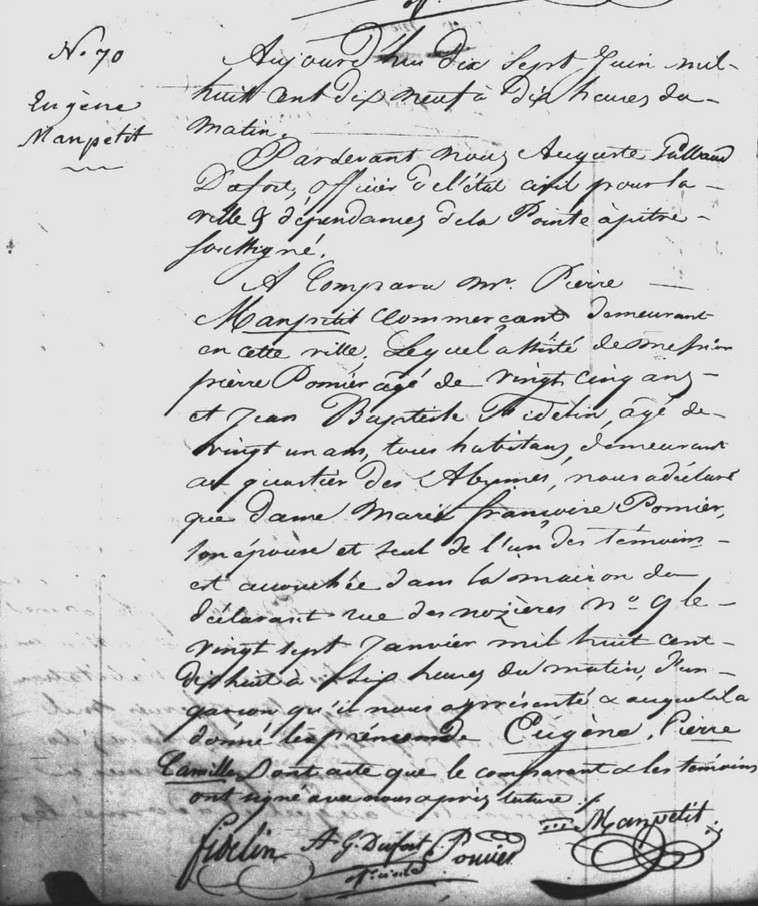 N.° 70
Eugène
Manpetit
Aujourd'hui dix Sept Juin mil
huit cent dix neuf à dix heures du
matin.
Pardevant nous Auguste
Dufort, officier de l'état civil pour la
ville & dépendances de la Pointe à pitre
soussigné.
A Comparu mr. Pierre
Manpetit Commerçant demeurant
en cette ville. Lequel assisté de
pierre Pomier âgé de vingt cinq ans
et Jean Baptiste Fidelin, âgé de
vingt un ans, tous habitans, demeurant
au quartier des Abymes, nous a déclaré
que dame Marie françoise Pomier,
son épouse et seul de l'un des témoins
est accouchée dans la maison du
déclarant rue des nozières n.° 9 le
vingt sept Janvier mil huit cent
dix huit à Six heures du matin, d'un
garçon qu'il nous a présenté & auquel il a
donné les prénoms de Eugène, Pierre
Camille, Dont acte que le comparant & les témoins
ont signé avec nous après lecture.
Fidelin A G. Dufort Pomier Manpetit
off. civil